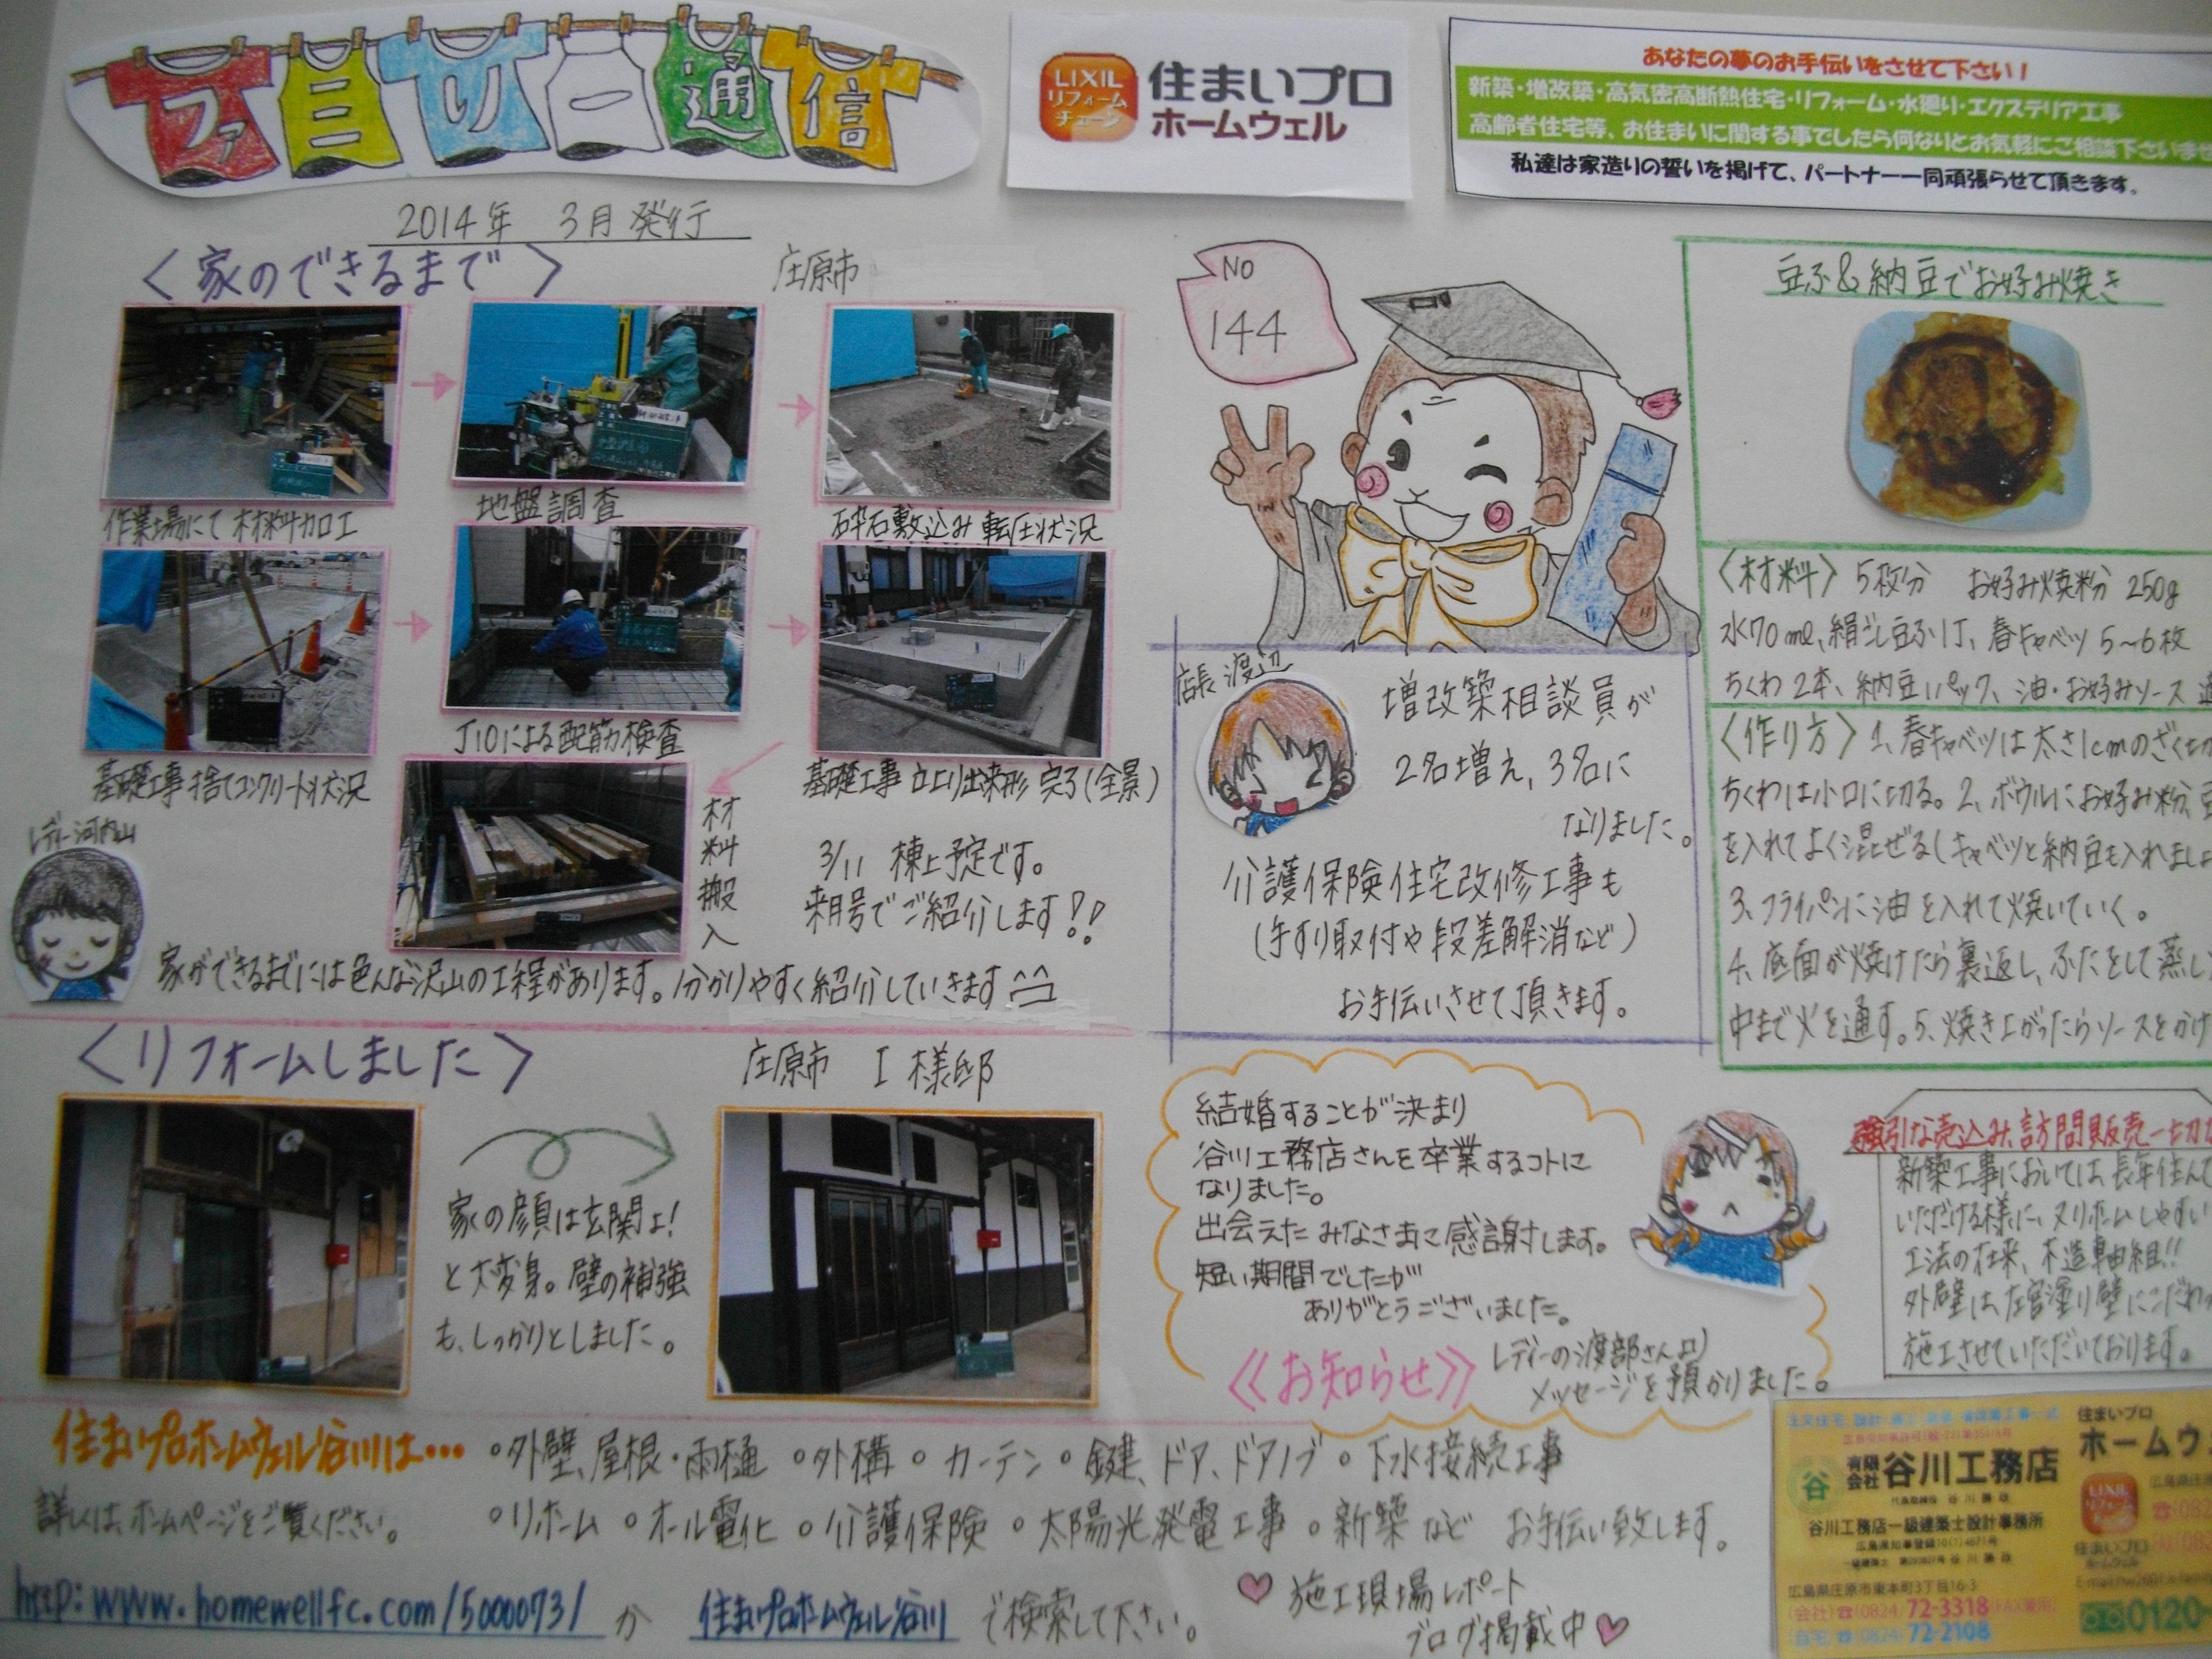 ファミリー通信
LIXIL
リフォーム
チェーン
住まいプロ
ホームウェル
あなたの夢のお手伝いをさせて下さい！
新築・増改築・高気密高断熱住宅・リフォーム・水廻り・エクステリア工事
高齢者住宅等、お住まいに関する事でしたら何なりとお気軽にご相談下さいませ
私達は家造りの誓いを掲げて、パートナー一同頑張らせて頂きます。
2014年 3月発行
〈家のできるまで〉 庄原市
作業場にて材料加工
地盤調査
砕石敷込み 転圧状況
基礎工事 捨てコンクリート状況
JIOによる配筋検査
基礎工事 立上り出来形 完了(全景)
材料搬入
3/11 棟上予定です。
来月号でご紹介します!!
レディー河内山
家ができるまでには色んな沢山の工程があります。分かりやすく紹介していきます^^
NO
144
店長 渡辺
増改築相談員が
2名増え、3名に
なりました。
介護保険住宅改修工事も
(手すり取付や段差解消など)
お手伝いさせて頂きます。
豆ふ&納豆でお好み焼き
〈材料〉5枚分 お好み焼粉 250g
水70ml、絹ごし豆ふ1丁、春キャベツ 5〜6枚
ちくわ 2本、納豆1パック、油・お好みソース 適
〈作り方〉1、春キャベツは太さ1cmのざく切
ちくわは小口に切る。2、ボウルにお好み粉、豆
を入れてよく混ぜる(キャベツと納豆も入れましょ
3、フライパンに油を入れて焼いていく。
4、底面が焼けたら裏返し、ふたをして蒸し
中まで火を通す。5、焼き上がったらソースをかけ
〈リフォームしました〉 庄原市 I様邸
家の顔は玄関よ!
と大変身。壁の補強
も、しっかりとしました。
結婚することが決まり
谷川工務店さんを卒業するコトに
なりました。
出会えたみなさまに感謝します。
短い期間でしたが
ありがとうございました。
《お知らせ》
レディーの渡部さんより
メッセージを預かりました。
強引な売込み、訪問販売一切
新築工事においては、長年住んで
いただける様に、又リホームしやすい
工法の在来、木造軸組!!
外壁は、左官塗り壁にこだわ
施工させていただいております。
住まいプロホームウェル谷川は…
◦外壁、屋根・雨樋 ◦外構 ◦カーテン ◦鍵、ドア、ドアノブ ◦下水接続工事
詳しくは、ホームページをご覧ください。
◦リホーム ◦オール電化 ◦介護保険 ◦太陽光発電工事 ◦新築など お手伝い致します。
http:www.homewellfc.com/5000073/ か 住まいプロホームウェル谷川 で検索して下さい。
♡ 施工現場レポート
ブログ掲載中♡
谷
有限会社 谷川工務店
谷川工務店一級建築士設計事務所
広島県庄原市東本町3丁目16-3
(会社)☎(0824)72-3318(FAX兼用)
(自宅)☎(0824)72-2108
住まいプロ
ホームウ
LIXIL
リフォーム
住まいプロ
ホームウェル
0120-